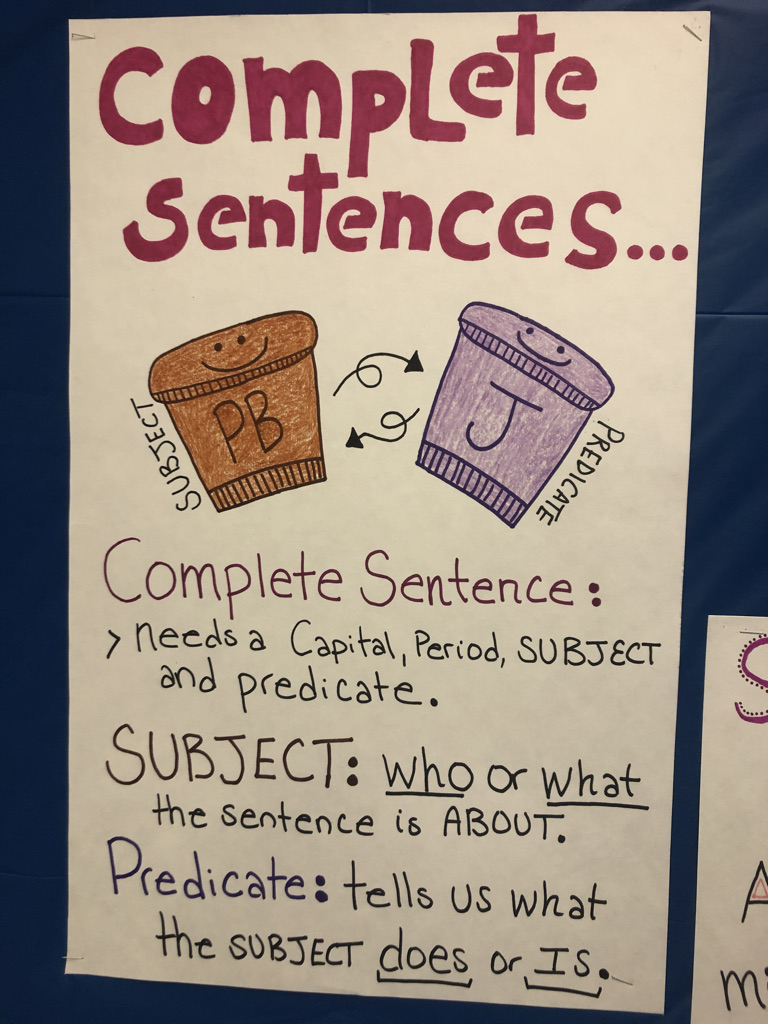 Complete
Sentences...
SUBJECT
PB
J
PREDICATE
Complete Sentence:
> needs a Capital, Period, SUBJECT
and predicate.
SUBJECT: who or what
the sentence is ABOUT.
Predicate: tells us what
the SUBJECT does or IS.